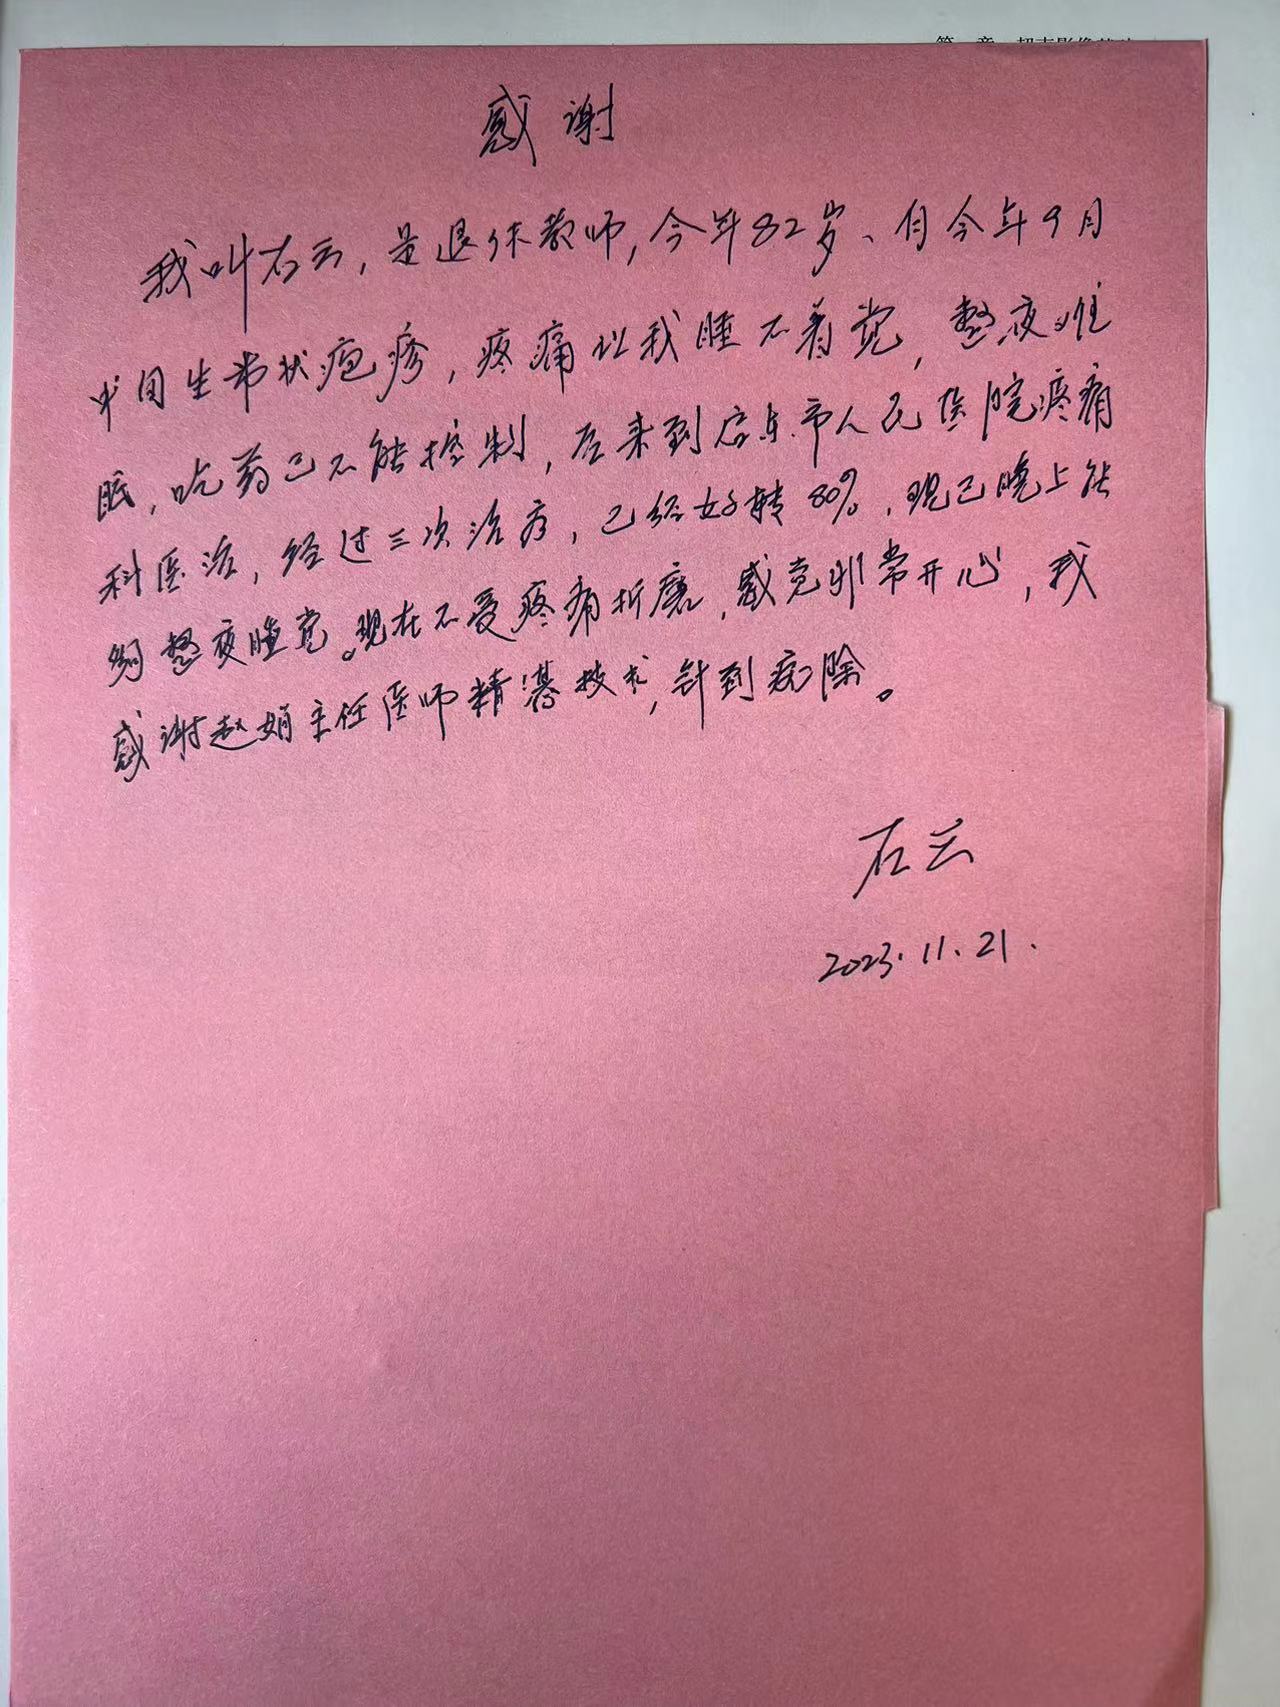 感谢
我叫石云，是退休教师，今年82岁、自今年9月
中旬生带状疱疹，疼痛以我睡不着觉，整夜难
眠，吃药已不能控制，后来到启东市人民医院疼痛
科医治，经过三次治疗，已经好转80%，现已晚上能
够整夜睡觉。现在不受疼痛折磨，感觉非常开心，我
感谢赵娟主任医师精湛技术，针到病除。
石云
2023.11.21.